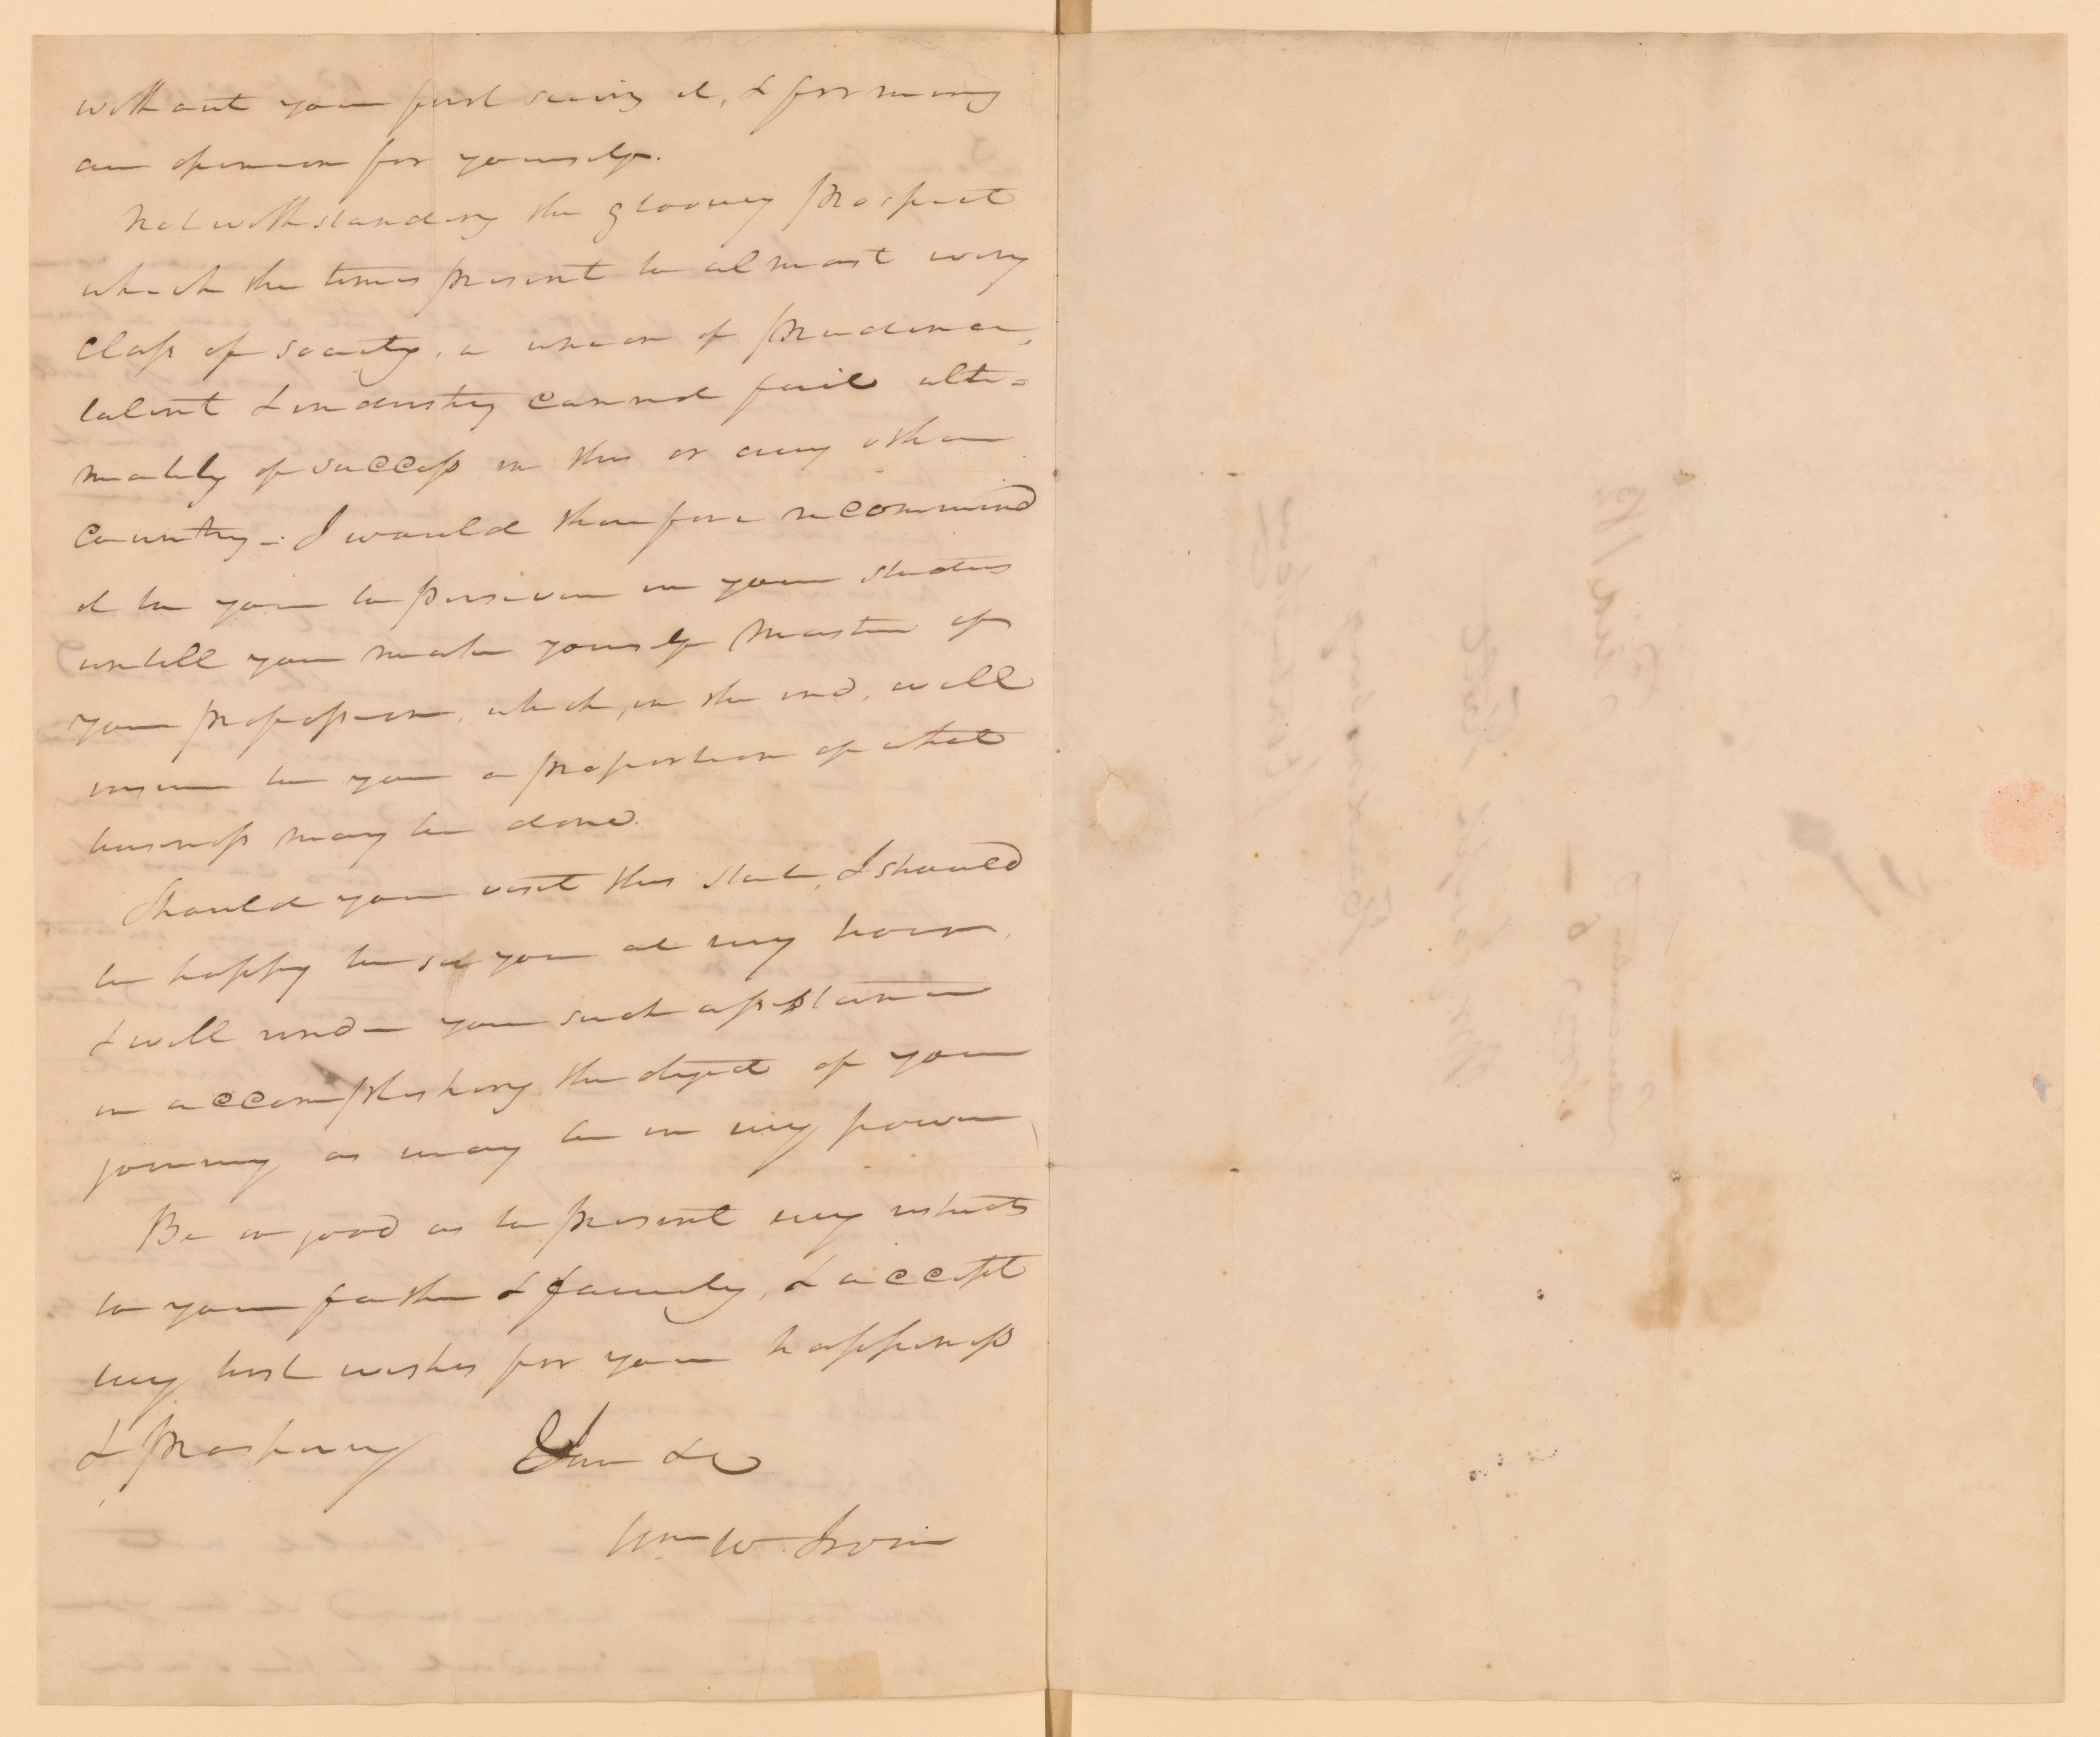 without your first seeing it, & forming
an opinion for yourself.
Notwithstanding the gloomy prospect
which the times present to almost every
class of society, a union of prudence,
talent & industry cannot fail ulti=
mately of success in this or any other
country – I would therefore recommend
it to you to persevere in your studies
untill you make yourself Master of
your profession, which, in the end, will
insure to you a proportion of what
business may be done.
Should you visit this state, I should
be happy to see you at my house,
& will render you such assistance
in accomplishing the object of your
journey as may be in my power
Be so good as to present my respects
to your father & family, & accept
my best wishes for your happiness
& prosperity I am &c
Wm W. Irvin